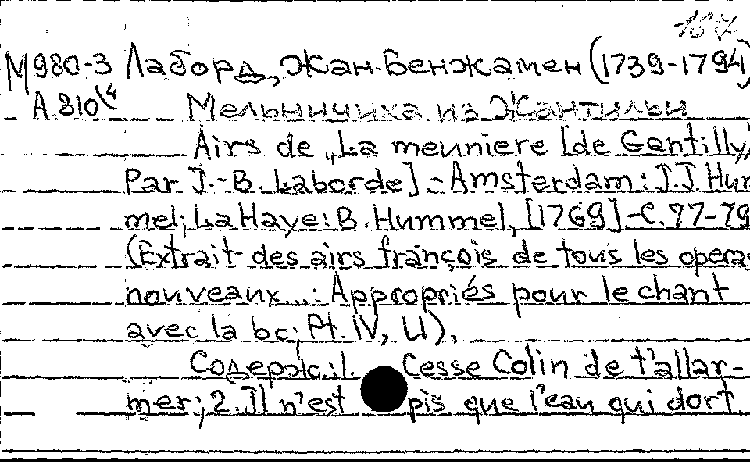 М980-3 Лаборд, Жан-Бенжамен (1739-1794)
А810
Мельничиха из Жантильи
Airs de „La meuniere [de Gantilly,
Par J.-B. Laborde].-Amsterdam: J.J Hum
mel; La Haye: B. Hummel, [1769]-C. 77-79
(Extrait des airs françois de tous les opera
nouveaux...: Appropriés pour le chant
avec la bc; Pt. IV, U).
Содерж.: 1. Cesse Colin de t'allar-
mer; 2. Il n'est pis que l'eau qui dort